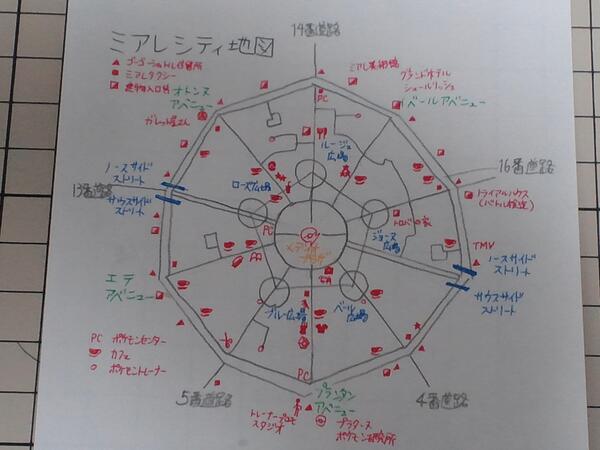 14番道路
ミアレシティ地図
ミアレ美術館
グランドホテル
シュールリッシュ
ミアレタクシー
オトンヌ
アベニュー
ベールアベニュー
ガレット屋さん
PC
ルージュ
広場
ノースサイド
ストリート
16番道路
13番道路
ローズ広場
トライアルハウス
(バトル検定)
サウスサイド
ストリート
PC
メディオ
プラザ
ジョーヌ
広場
TMV
ノースサイド
ストリート
エテ
アベニュー
サウスサイド
ストリート
ブルー広場
ベール
広場
PC ポケモンセンター
カフェ
ポケモントレーナー
PC
5番道路
プランタン
アベニュー
4番道路
トレーナープロモ
スタジオ
プラターヌ
ポケモン研究所